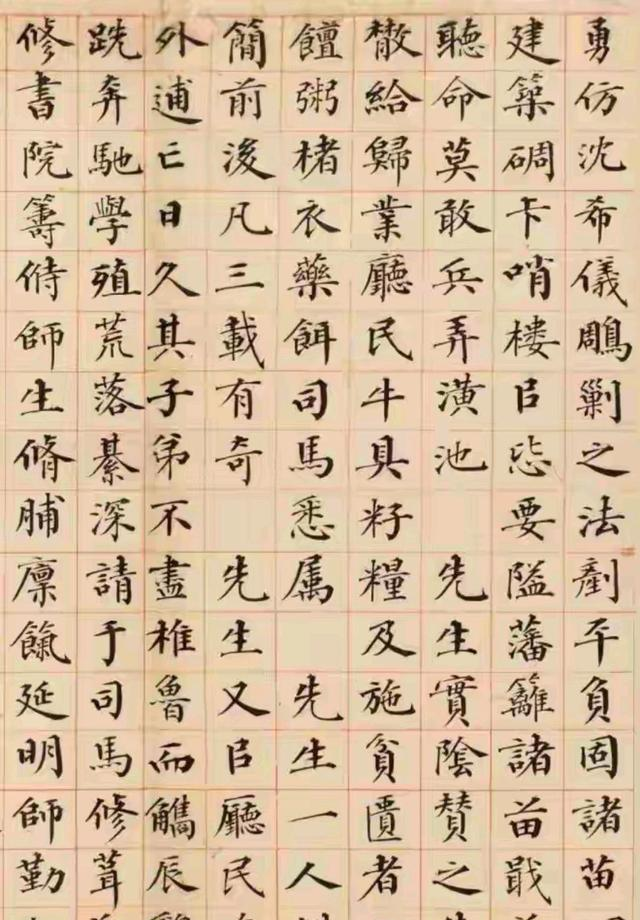 勇仿沈希儀鵰剿之法剷平負固諸苗
建築碉卡哨樓㠯恷要隘藩籬諸苗戢
聽命莫敢兵弄潢池 先生實陰贊之
散給歸業廳民牛具籽糧及施貧匱者
饘粥楮衣藥餌司馬悉属 先生一人
簡前後凡三載有奇 先生又㠯廳民
外逋亡日久其子弟不盡椎魯而觿辰
跣奔馳學殖荒落綦深請于司馬修葺
修書院籌偫師生脩脯廩餼延明師勤